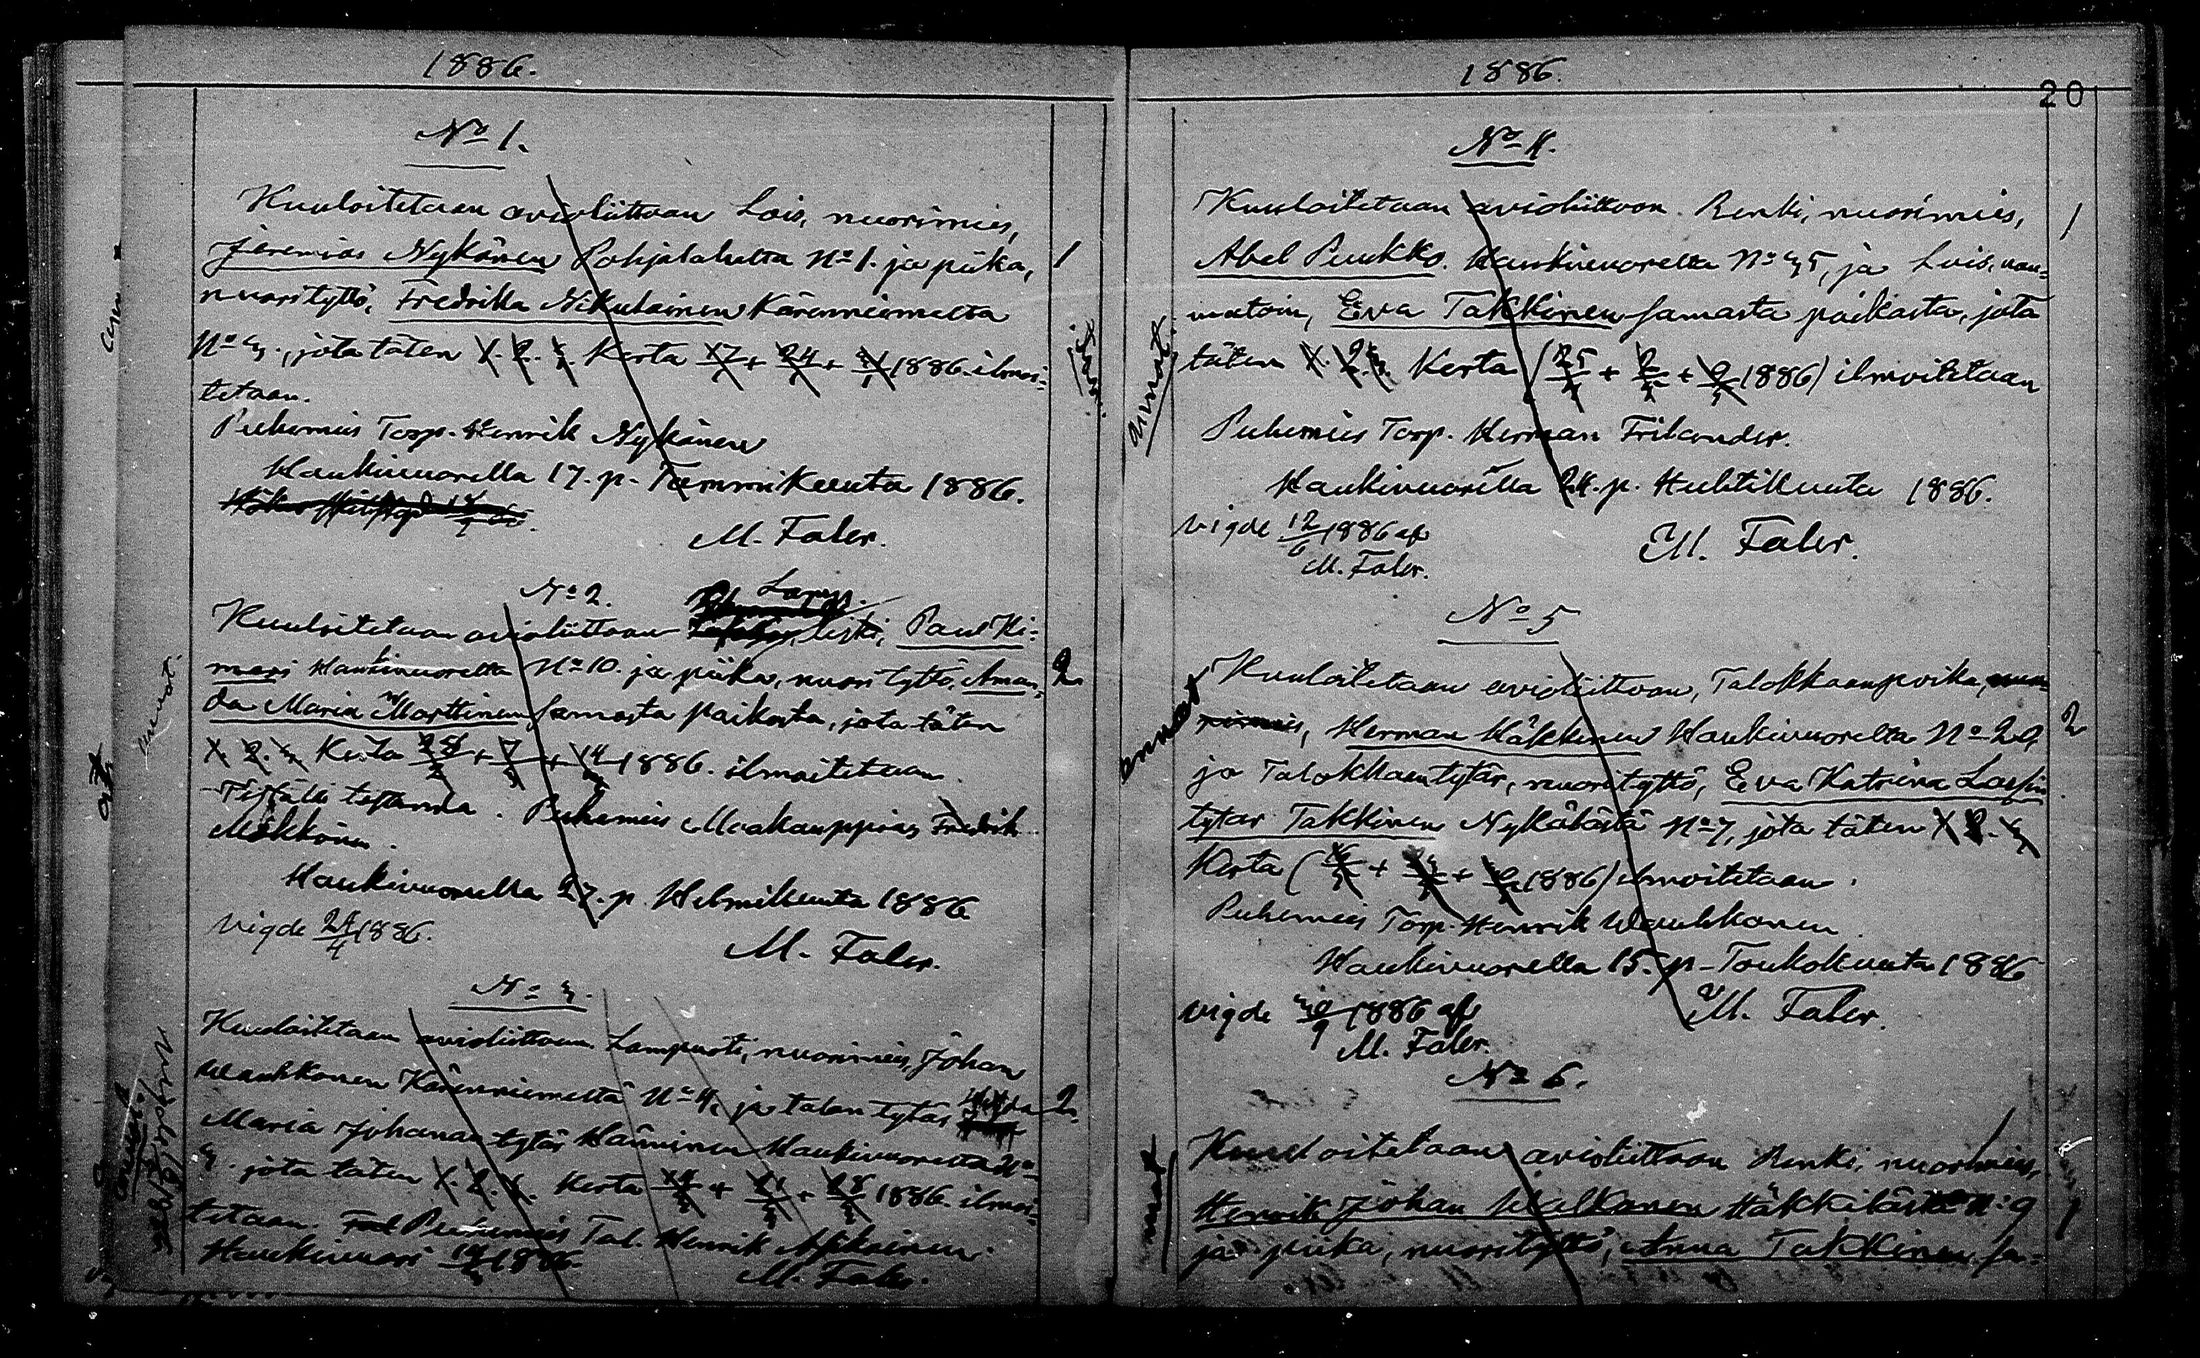 1886.
No 1.
Kuuloitetaan avioliittoon Lois, nuorimies,
Jeremias Nykänen Pohjalahelta No 1. ja piika, 1
nuori tyttö, Fredrika Nikulainen Kärenniemeltä
No 3., jota täten X. 2. 3. Kerta 17/1 + 24/1 + 31/1 1886 ilmoi=
tetaan.
Puhemies Torp. Henrik Nykänen
Haukivuorella 17. p. Tammikuuta 1886.
M. Faler.
No 2. Lamp.
Kuuloitetaan avioliittoon leski, Paul Ki=
mari Haukivuorelta No 10. ja piika, nuori tyttö, Aman= 2
da Maria Marttinen samasta paikasta, jota täten
X. 2. 3. Kerta 28/2 + 7/3 + 14/3 1886. ilmoitetaan.
Puhemies Maakauppias Fredrik
Mäkkönen.
Haukivuorella 27. p. Helmikuuta 1886
vigde 24/4 1886.
M. Faler.
No 3.
Kuuloitetaan avioliittoon Lampuoti, nuorimies, Johan
Waukkonen Kärenniemeltä No 4, ja talon tytär 2
Maria Johanan tytär Hänninen Haukivuorelta No
3. jota täten X. 2. 3. Kerta 14/3 + 21/3 + 28/3 1886. ilmoi=
tetaan. Puhemies Tal. Henrik Nikoinen.
Haukivuori 14/3 1886.
M. Faler.
1886.
20
No 4.
Kuuloitetaan avioliittoon. Renki, nuorimies, 1
Abel Puukko. Haukivuorelta No 35, ja Lois, vai=
matoin, Eva Takkinen samasta paikasta, jota
täten X. 2. 3. Kerta (25/4 + 2/5 + 9/5 1886) ilmoitetaan
Puhemies Torp. Herman Frilander.
Haukivuorella 24. p. Huhtikuuta 1886.
vigde 12/6 1886 af
M. Faler.
M. Faler.
No 5
Kuuloitetaan avioliittoon, Talokkaanpoika, nuo=
rimies, Herman Häkkinen Haukivuorelta No 29 2
ja Talokkaantytär, nuorityttö, Eva Katrina Lassin
tytar Takkinen Nykälästä No 7, jota täten X 2. 3
Kerta (16/5 + 23/5 + 30/5 1886) ilmoitetaan.
Puhemies Torp. Henrik Waukkonen.
Haukivuorella 15. p. Toukokuuta 1886
M. Faler.
vigde 30/9 1886 af
M. Faler.
No 6.
Kuuloitetaan avioliittoon Renki, nuorimies,
Henrik Johan Walkonen Häkkilästä No: 9 1
ja piika, nuorityttö, Anna Takkinen sa=